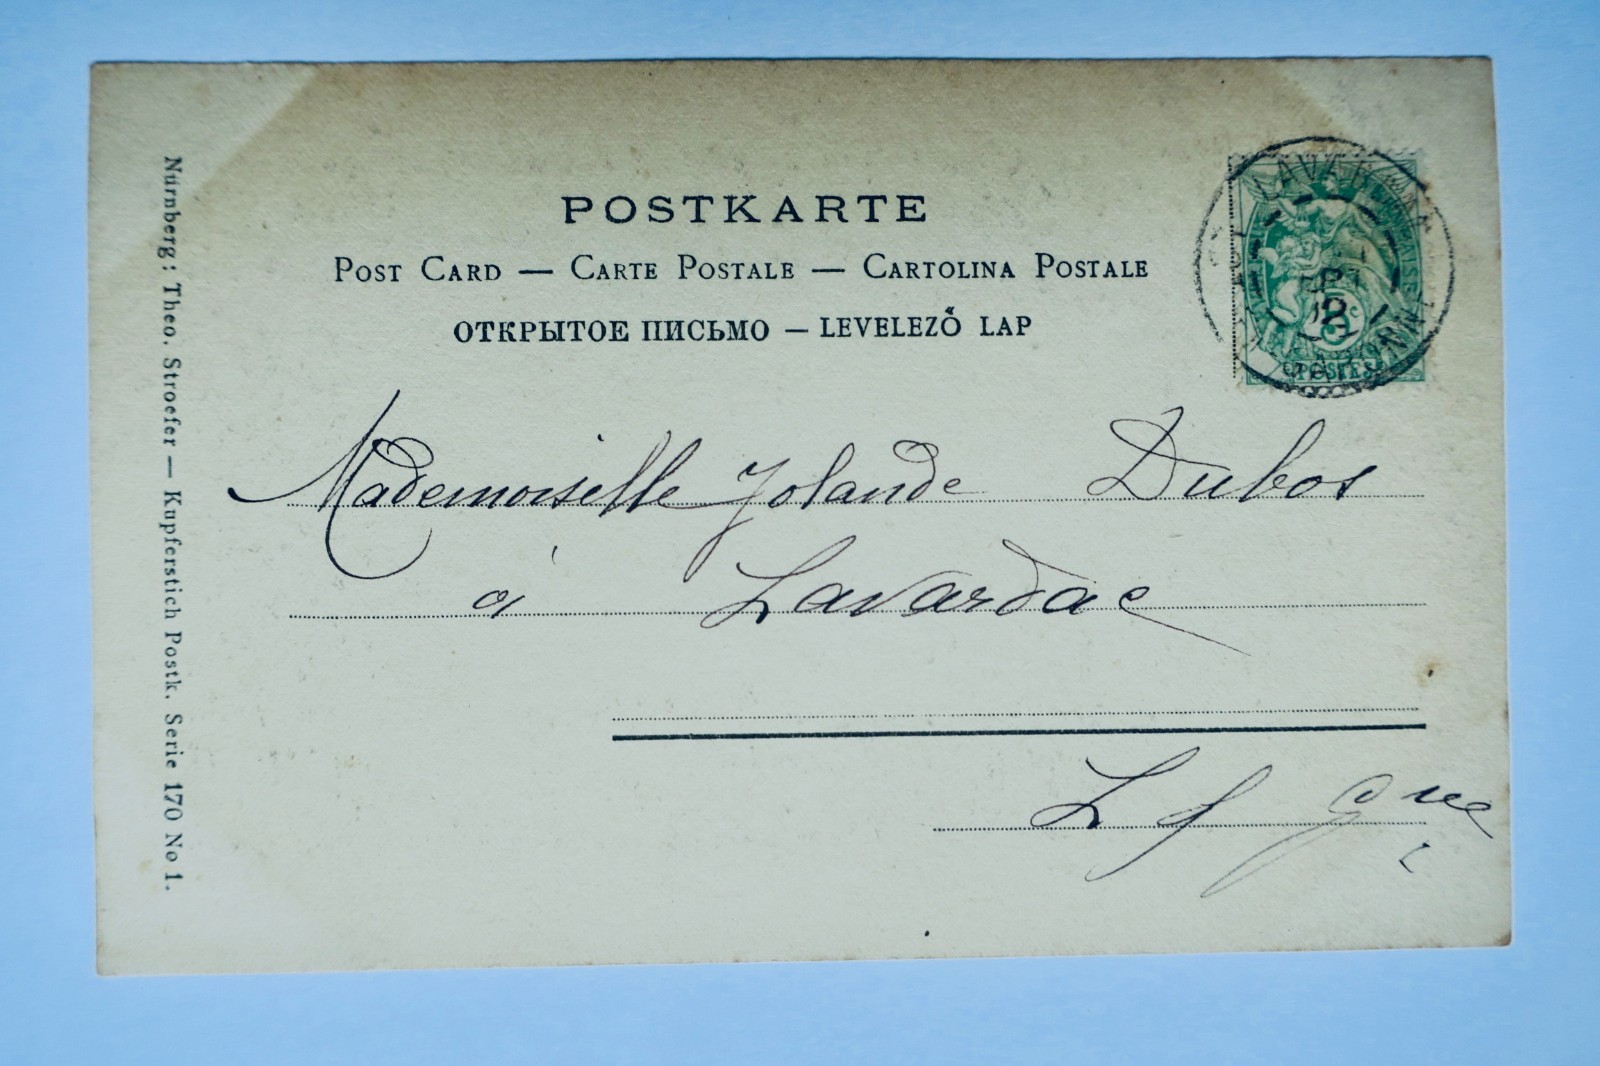 POSTKARTE
POST CARD — CARTE POSTALE — CARTOLINA POSTALE
ОТКРЫТОЕ ПИСЬМО — LEVELEZŐ LAP
POSTES
Mademoiselle Yolande Dubos
à Lavardac
L & Gne
Nürnberg: Theo. Stroefer — Kupferstich Postk. Serie 170 No 1.